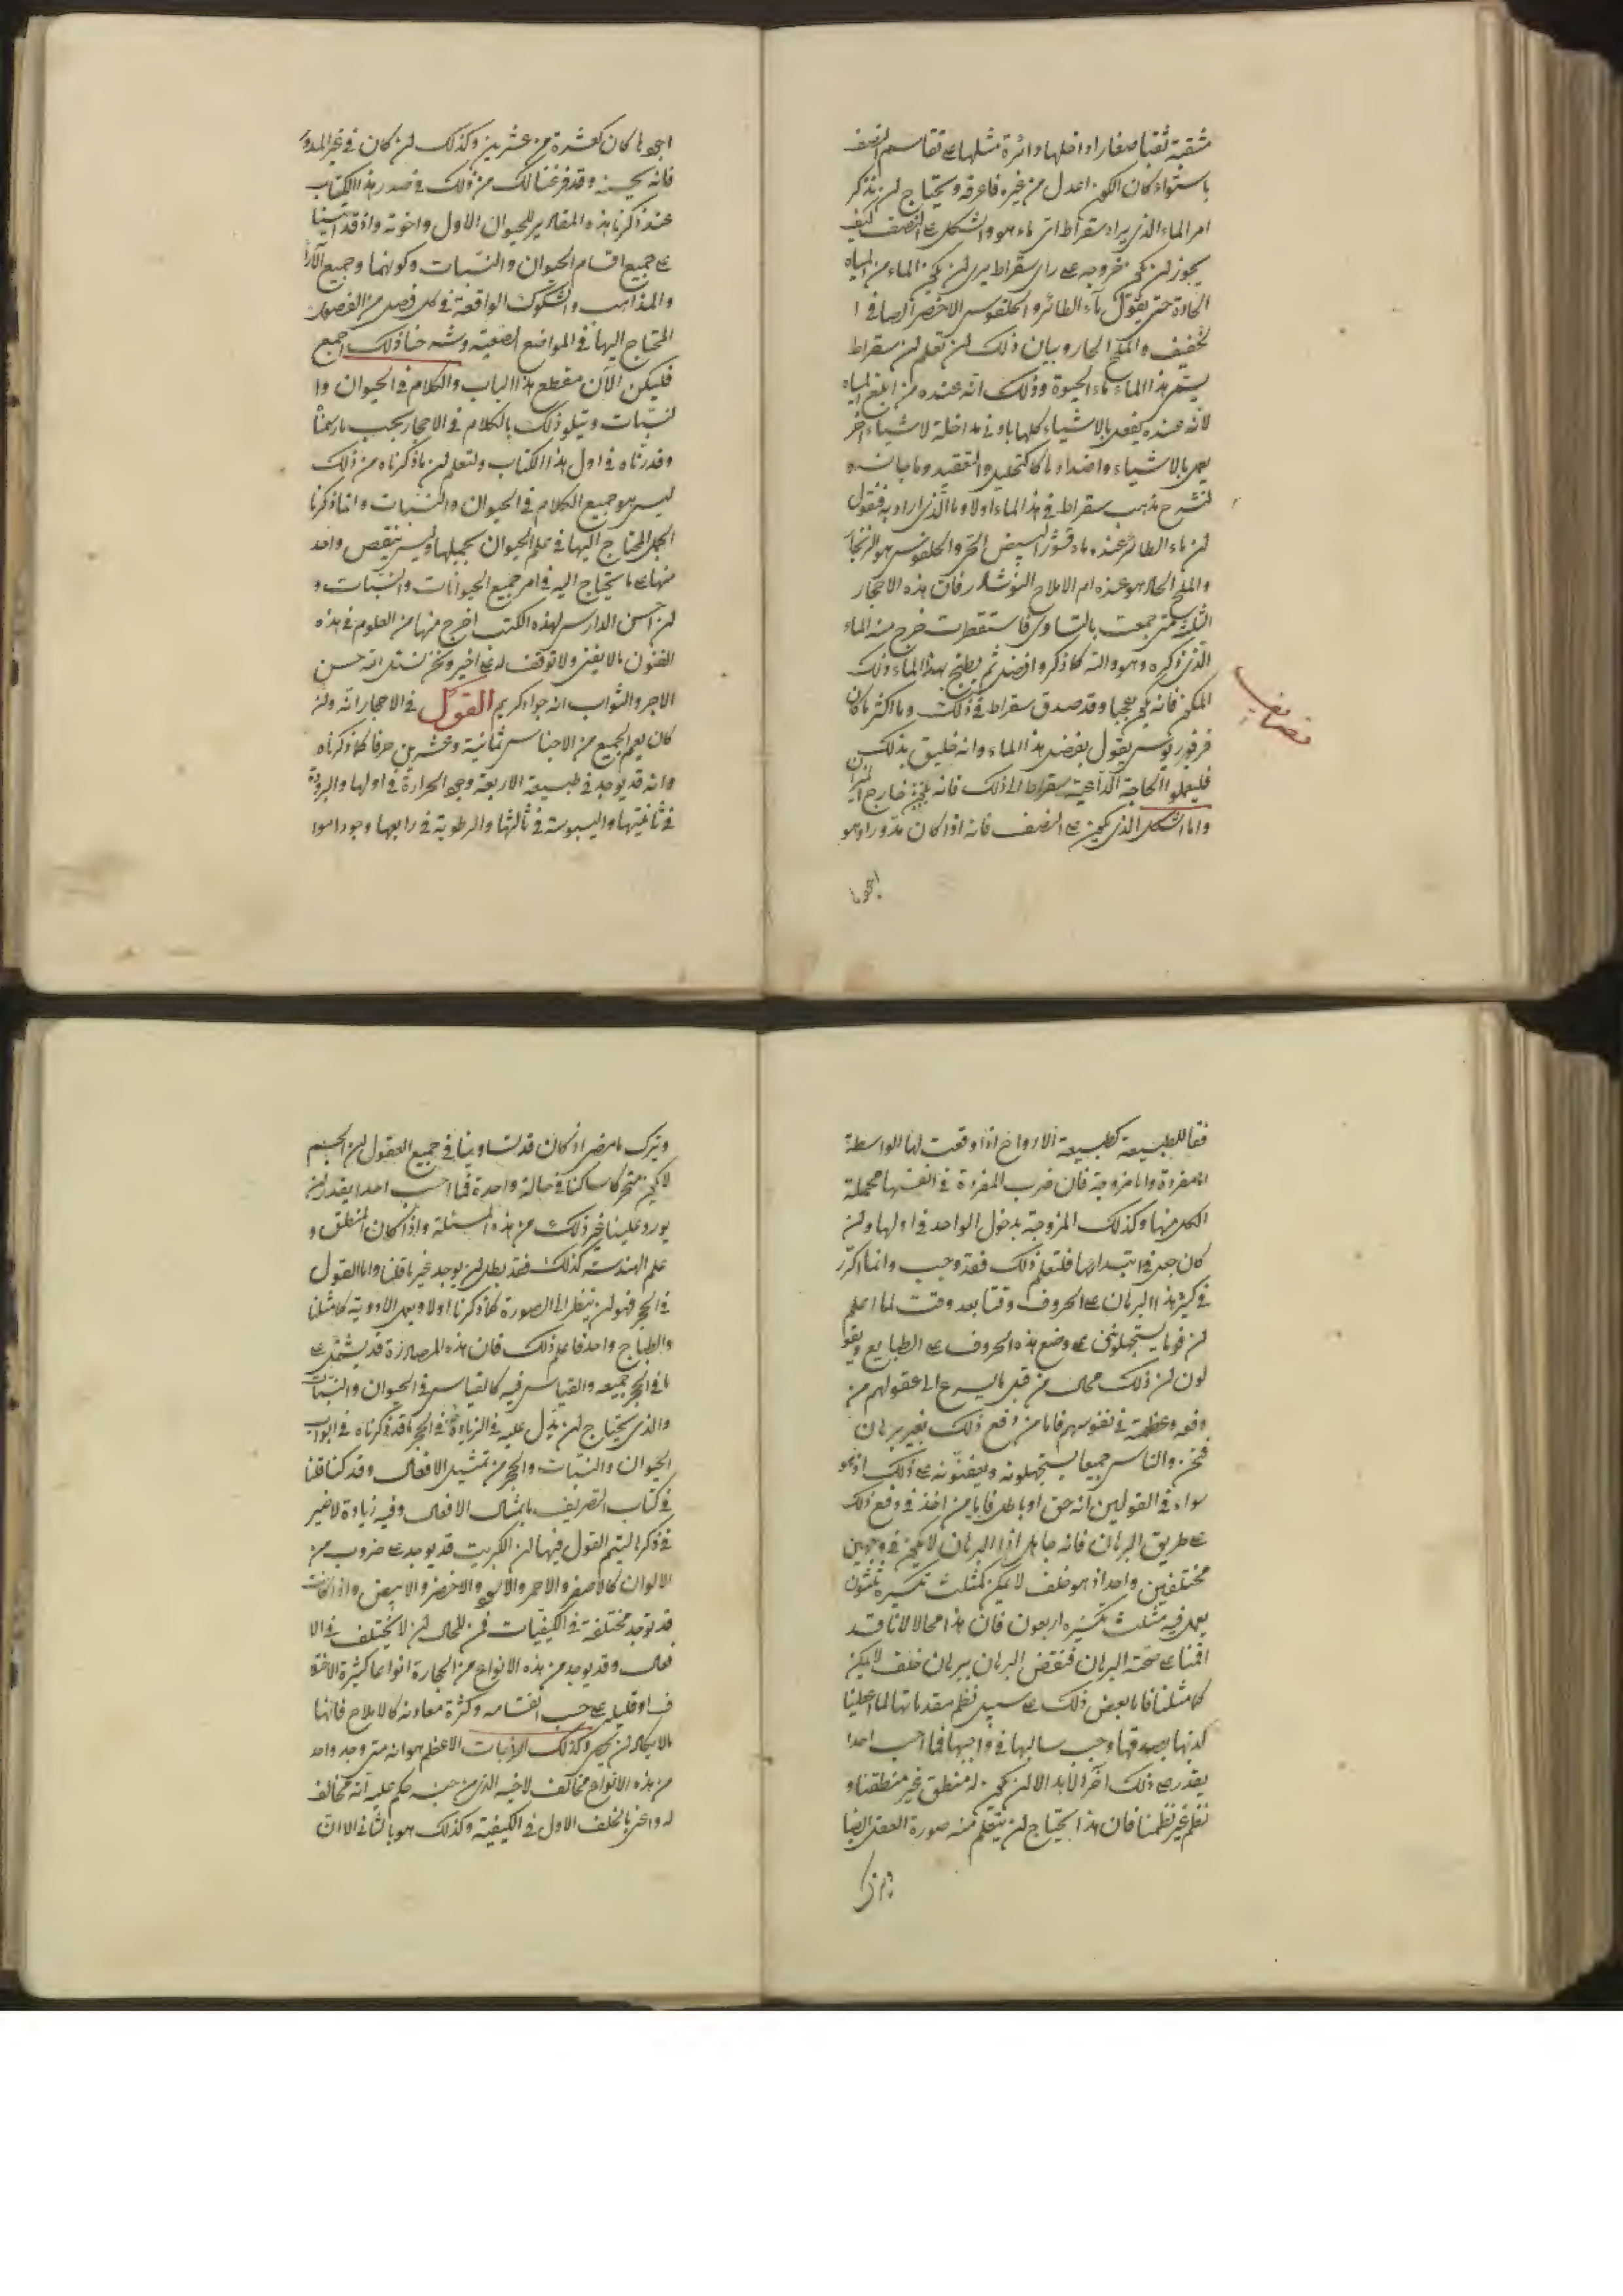 مثقبة ثقبا صغارا وداخلها دائرة مثلها على تقاسم النصف
باستواء كان الكون اعدل من غيره فاعرفه ويحتاج ان نذكر
امر الماء الذي يراه سقراط اي ماء هو والشكل على النصف كيف
يجوز ان يكون خروجه على راى سقراط يرى ان يكون الماء من المياه
الحادة حتى يقول ماء الطائر والحلقوس الاخضر الصافى ا
لخفيف والملح الحار وبيان ذلك ان تعلم ان سقراط
يسمى هذا الماء ماء الحيوة وذلك انه عنده من المياه
لانه عنده يفعل بالاشياء كلها باذنى مداخلة لاشياء اخر
يعمل بالاشياء واضدادها كالتحليل والتعقيد وما جانسه
لنشرح مذهب سقراط في هذا الماء اولا وما الذي اراد به فنقول
ان ماء الطائر عنده ماء قشور البيض الحى والحلقوس هو الزنجار
والملح الحار هو عنده ام الاملاح النوشادر فان هذه الاحجار
الثلثة متى جمعت بالتساوى فاستقطرت خرج منه الماء
الذي ذكره وهو والله كما ذكر وافضل ثم يطبخ بهذا الماء ذلك
المكون فانه يكون عجبا وقد صدق سقراط في ذلك وما اكثر ما كان
فرفوريوس يقول بفضل هذا الماء وانه خليق بذلك
فليعملوا الحاجة الداعية سقراط الى ذلك فانه يجئ خارج الميزان
واما الشكل الذي يكون على النصف فانه اذا كان مدورا وهو
اجودها
اجودها كان كعشرة من عشرين وكذلك ان كان في غير المدور
فانه يحسنه وقد فرغنا لك من ذلك في صدر هذا الكتاب
عند ذكرنا هذه المقادير للحيوان الاول واخوته واذ قد اتينا
على جميع اقسام الحيوان والنبات وكونهما وجميع الآرا
والمذاهب والشكوك الواقعة في كل فصل من الفصول
المحتاج اليها في المواضع الصعبة وشرحنا ذلك اجمع
فليكن الآن مقطع هذا الباب والكلام في الحيوان وا
لنبات ونتلو ذلك بالكلام في الاحجار بحسب ما رسمنا
وقدرناه في اول هذا الكتاب ولتعلم ان ما ذكرناه من ذلك
ليس هو جميع الكلام في الحيوان والنبات وانما ذكرنا
الجمل المحتاج اليها في علم الحيوان بجملها وليس ينقص واحد
منها على ما يحتاج اليه في امر جميع الحيوانات والنبات و
ان احسن الدارس لهذه الكتب اخرج منها من العلوم في هذه
الفنون ما لا يفنى ولا توقف له على اخير ونحن نسئل الله حسن
الاجر والثواب انه جواد كريم القول في الاحجار انه وان
كان يعم الجميع من الاجناس ثمانية وعشرين حرفا كما ذكرناه
وانه قد يوجد في طبيعة الاربعة وهي الحرارة في اولها والبرودة
في ثانيتها واليبوسة في ثالثها والرطوبة في رابعها وجودا سوا
فقا للطبيعة كطبيعة الارواح اذا وقعت لها الواسطة
اما مفردة واما مزوجة فان ضرب المفردة في انفسها مجملة
الكل منها وكذلك المزوجة بدخول الواحد في اولها وان
كان جعل في ابتدائها فلتعلم ذلك فقد وجب وانما اكرر
في كثير هذا البرهان على الحروف وقتا بعد وقت لما اعلم
ان قوما يستجهلوننى على وضع هذه الحروف على الطبايع ويقو
لون ان ذلك محال من قبل ما يسرع الى عقولهم من
دفعه وعظمه في نفوسهم فاما من دفع ذلك بغير برهان
فنحن والناس جميعا يستجهلونه ويعنفونه على ذلك اذ هو
سواء في القولين انه حق او باطل فاما من اخذ في دفع ذلك
على طريق البرهان فانه جاهل اذا البرهان لا يكون في وجهين
مختلفين واحدا اذ هو خلف لا يمكن كمثلث تكسيره ثلثون
يعمل فيه مثلث تكسيره اربعون فان هذا محالا لانا قد
اقمنا على صحته البرهان فنقض البرهان ببرهان خلف لا يمكن
كما مثلنا فاما بعض ذلك على سبيل نظم مقدماتها لما علينا
كذبها بصدقها وجب سالبها في واجبها فما احب احدا
يقدر على ذلك آخر الابد الا ان يكون له منطق غير منطقنا و
نظم غير نظمنا فان هذا يحتاج ان نتعلم منه صورة العقل ايضا
ويترك
ويترك ما مضى اذ كان قد تساوينا في جميع العقول ان الجسم
لا يكون متحركا ساكنا في حالة واحدة فما احسب احدا يقدر ان
يورد علينا غير ذلك من هذه المسئلة واذا كان المنطق و
علم الهندسة كذلك فقد بطل ان يوجد غير ما قلنا واما القول
في الحجر فهو ان ينظر الى الصورة كما ذكرنا اولا ويعمل الادوية كما مثلنا
والطباخ واحد فاعلم ذلك فان هذه المصادرة قد يشتمل على
ما في الحجر جميعه والقياس فيه كالقياس في الحيوان والنبات
والذي يحتاج ان يدل عليه في الزيادة في الحجر ما قد ذكرناه في ابواب
الحيوان والنبات والحجر من تمثيل الافعال وقد كنا قلنا
في كتاب التصريف ما يمثال الافعال وفيه زيادة لا غير
في ذكرها ليتم القول فيها ان الكبريت قد يوجد على ضروب من
الالوان كالاصفر والاحمر والاسود والاخضر والابيض واذا كانت
قد توجد مختلفة في الكيفيات فمن المحال ان لا يختلف في الا
فعال وقد يوجد من هذه الانواع من الحجارة انواعا كثيرة الاختلا
ف او قليل على حسب انقسامه وكثرة معادنه كالاملاح فانها
ما لا يكاد ان يحصى وكذلك الزاجات الاعظم هو انه متى وجد واحد
من هذه الانواع مخالف لاخيه الذي من جنسه حكم عليه انه مخالف
له واعنى بالخلف الاول في الكيفية وكذلك هو بالثانى الا ان